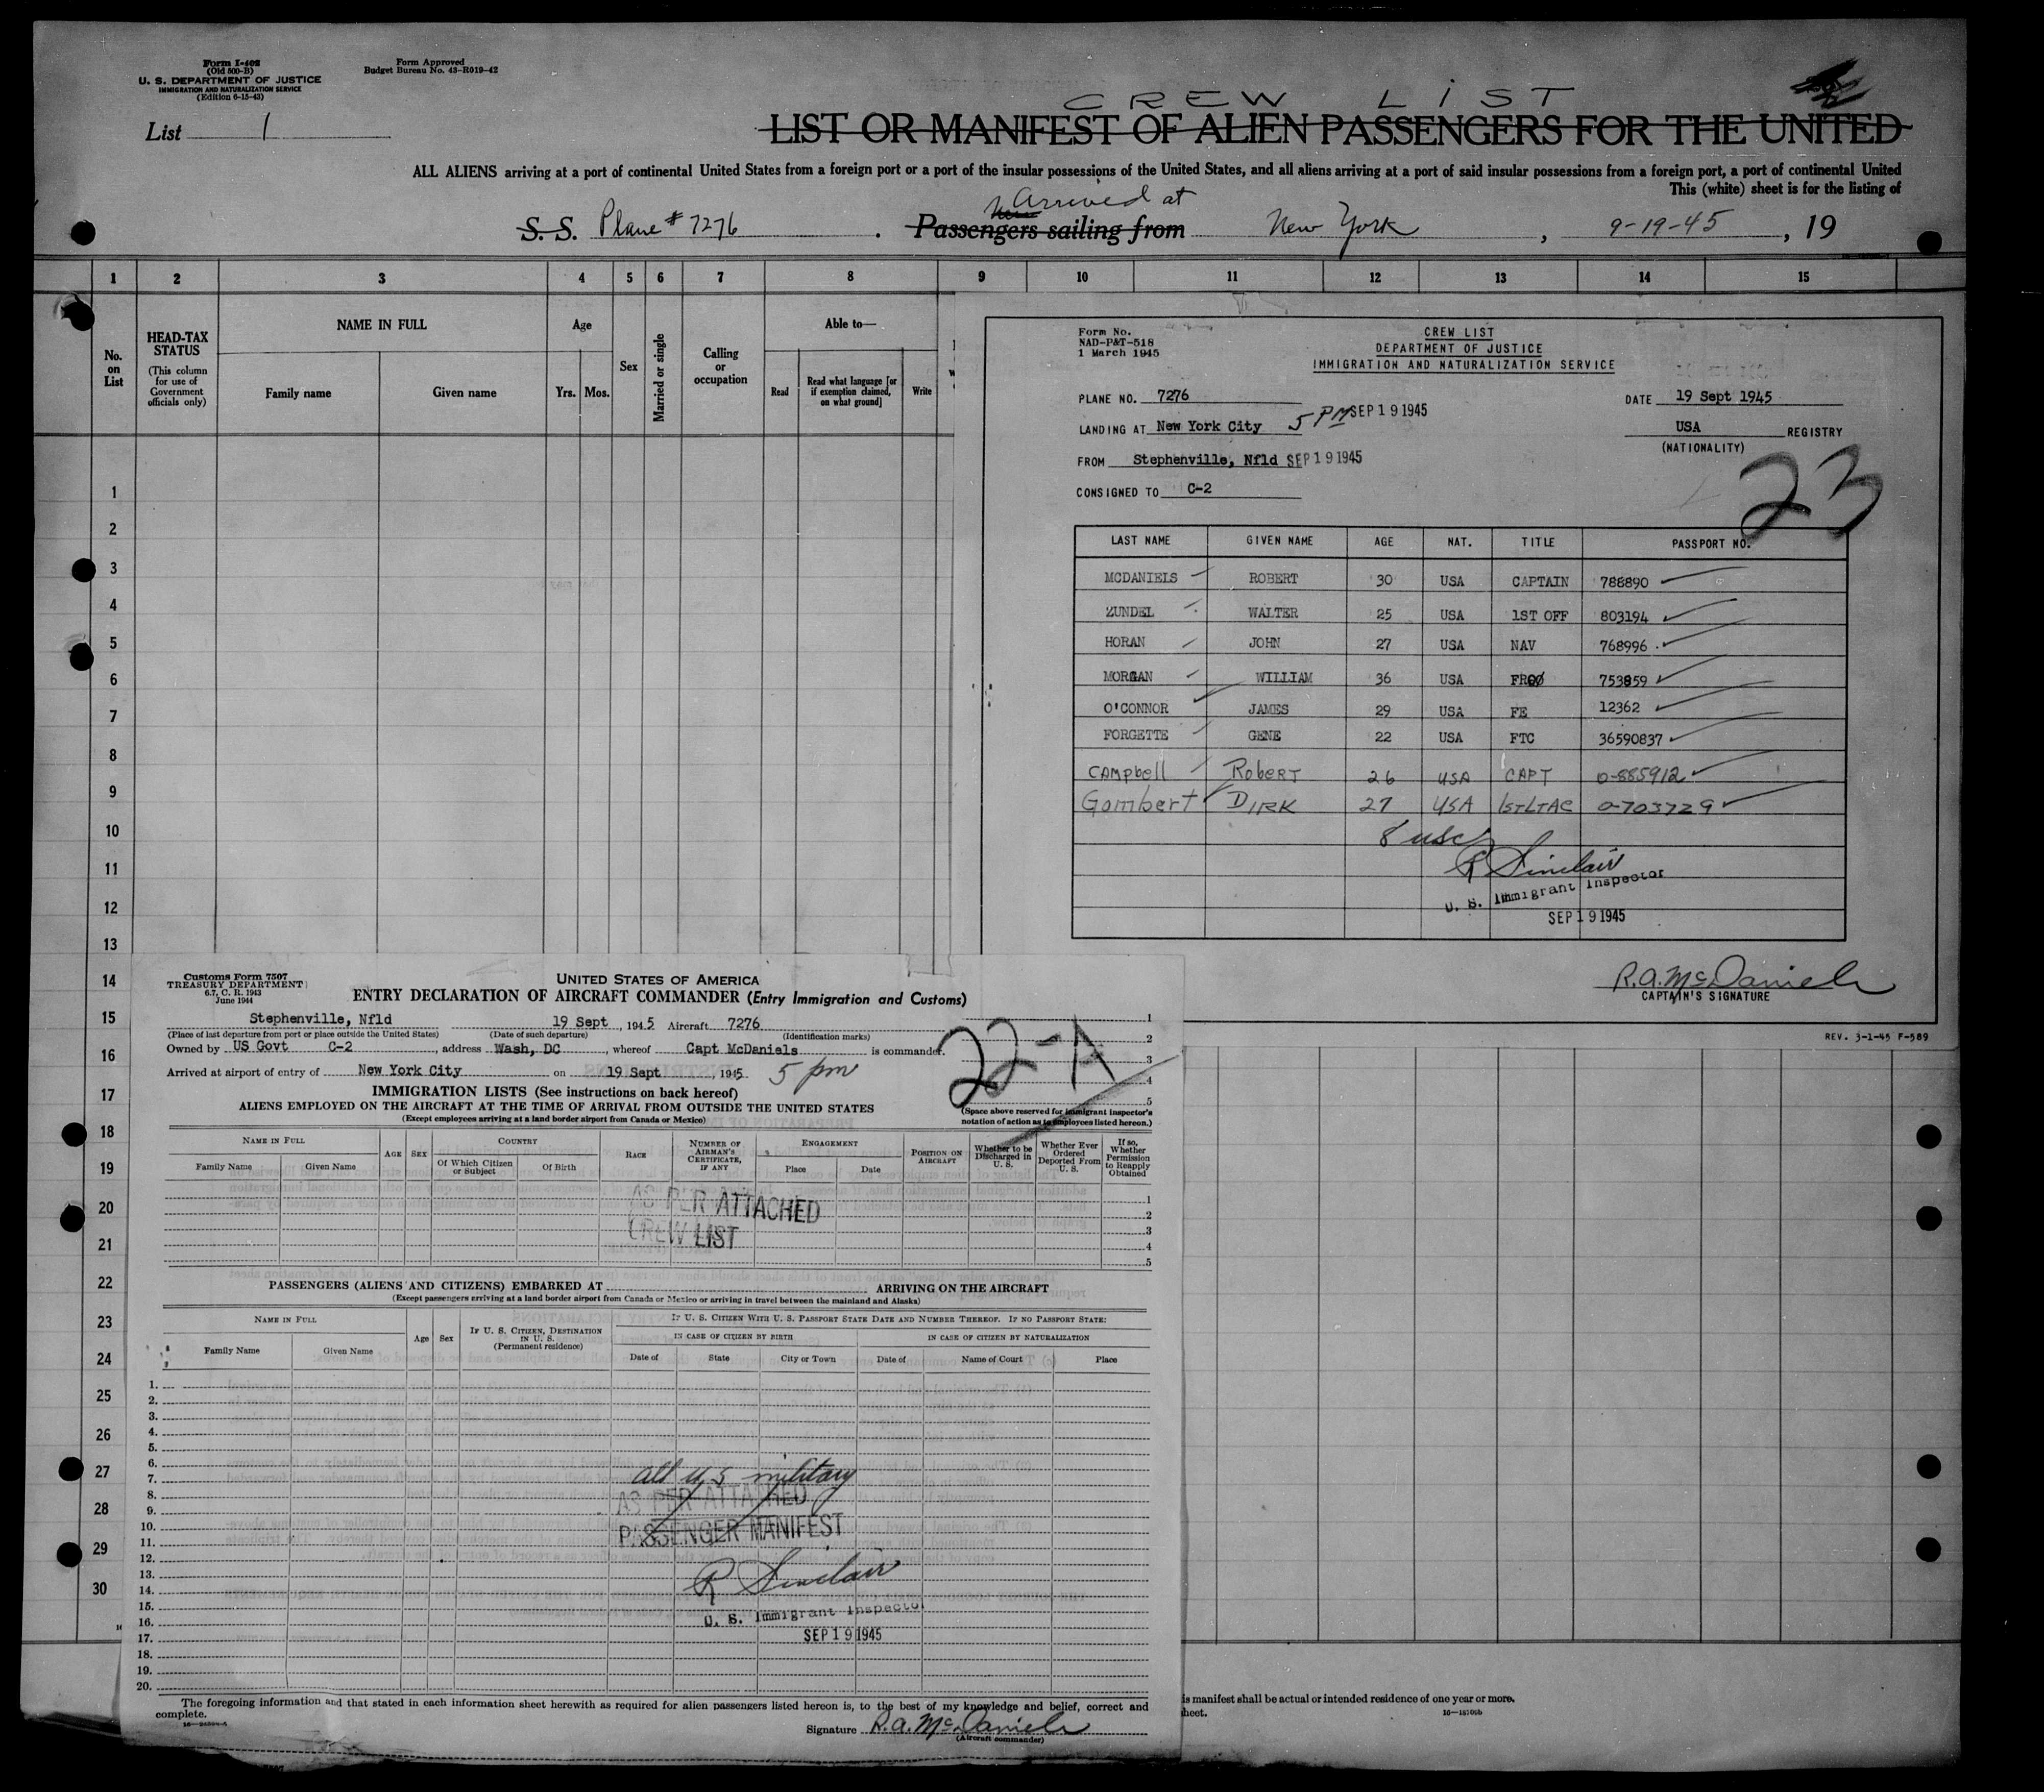 Form I-402
(Old 500-B)
U. S. DEPARTMENT OF JUSTICE
IMMIGRATION AND NATURALIZATION SERVICE
(Edition 6-15-43)
Form Approved
Budget Bureau No. 43-R019-42
List 1
CREW LIST
LIST OR MANIFEST OF ALIEN PASSENGERS FOR THE UNITED
ALL ALIENS arriving at a port of continental United States from a foreign port or a port of the insular possessions of the United States, and all aliens arriving at a port of said insular possessions from a foreign port, a port of continental United
This (white) sheet is for the listing of
Arrived at
S. S. Plane # 7276 . Passengers sailing from New York , 9-19-45 , 19
1 2 3 4 5 6 7 8 9 10 11 12 13 14 15
No. on List
HEAD-TAX STATUS
(This column for use of Government officials only)
NAME IN FULL
Family name Given name
Age
Yrs. Mos.
Sex
Married or single
Calling or occupation
Able to—
Read
Read what language [or if exemption claimed, on what ground]
Write
1
2
3
4
5
6
7
8
9
10
11
12
13
14
15
16
17
18
19
20
21
22
23
24
25
26
27
28
29
30
Form No.
NAD-P&T-518
1 March 1945
CREW LIST
DEPARTMENT OF JUSTICE
IMMIGRATION AND NATURALIZATION SERVICE
PLANE NO. 7276
DATE 19 Sept 1945
LANDING AT New York City 5 PM SEP 19 1945
USA REGISTRY
(NATIONALITY)
FROM Stephenville, Nfld SEP 19 1945
CONSIGNED TO C-2
23
LAST NAME GIVEN NAME AGE NAT. TITLE PASSPORT NO.
MCDANIELS ROBERT 30 USA CAPTAIN 788890
ZUNDEL WALTER 25 USA 1ST OFF 803194
HORAN JOHN 27 USA NAV 768996
MORGAN WILLIAM 36 USA 753859
O'CONNOR JAMES 29 USA FE 12362
FORGETTE GENE 22 USA FTC 36590837
CAMPbell RobERT 26 USA CAPT 0-885912
Gombert DIRK 27 USA 1STLTAC 0-703729
8 usc
R Sinclair
U. S. Immigrant Inspector
SEP 19 1945
R.A. McDaniels
CAPTAIN'S SIGNATURE
REV. 3-1-45 F-589
Customs Form 7507
TREASURY DEPARTMENT
6.7, C. R. 1943
June 1944
UNITED STATES OF AMERICA
ENTRY DECLARATION OF AIRCRAFT COMMANDER (Entry Immigration and Customs)
Stephenville, Nfld 19 Sept , 1945 Aircraft 7276
(Place of last departure from port or place outside the United States) (Date of such departure) (Identification marks)
Owned by US Govt C-2 , address Wash, DC , whereof Capt McDaniels is commander.
Arrived at airport of entry of New York City on 19 Sept , 1945 5 pm
22-A
1
2
3
4
5
(Space above reserved for immigrant inspector's
notation of action as to employees listed hereon.)
IMMIGRATION LISTS (See instructions on back hereof)
ALIENS EMPLOYED ON THE AIRCRAFT AT THE TIME OF ARRIVAL FROM OUTSIDE THE UNITED STATES
(Except employees arriving at a land border airport from Canada or Mexico)
NAME IN FULL
Family Name Given Name
AGE SEX
COUNTRY
Of Which Citizen or Subject Of Birth
RACE
NUMBER OF AIRMAN'S CERTIFICATE, IF ANY
ENGAGEMENT
Place Date
POSITION ON AIRCRAFT
Whether to be Discharged in U. S.
Whether Ever Ordered Deported From U. S.
If so, Whether Permission to Reapply Obtained
1
2
3
4
5
AS PER ATTACHED
CREW LIST
PASSENGERS (ALIENS AND CITIZENS) EMBARKED AT ARRIVING ON THE AIRCRAFT
(Except passengers arriving at a land border airport from Canada or Mexico or arriving in travel between the mainland and Alaska)
NAME IN FULL
Family Name Given Name
Age Sex
IF U. S. CITIZEN, DESTINATION IN U. S.
(Permanent residence)
IF U. S. CITIZEN WITH U. S. PASSPORT STATE DATE AND NUMBER THEREOF. IF NO PASSPORT STATE:
IN CASE OF CITIZEN BY BIRTH IN CASE OF CITIZEN BY NATURALIZATION
Date of State City or Town Date of Name of Court Place
1.
2.
3.
4.
5.
6.
7.
8.
9.
10.
11.
12.
13.
14.
15.
16.
17.
18.
19.
20.
all U S military
AS PER ATTACHED
PASSENGER MANIFEST
R Sinclair
U. S. Immigrant Inspector
SEP 19 1945
The foregoing information and that stated in each information sheet herewith as required for alien passengers listed hereon is, to the best of my knowledge and belief, correct and
complete.
Signature R.A. McDaniels
(Aircraft commander)
is manifest shall be actual or intended residence of one year or more.
heet.